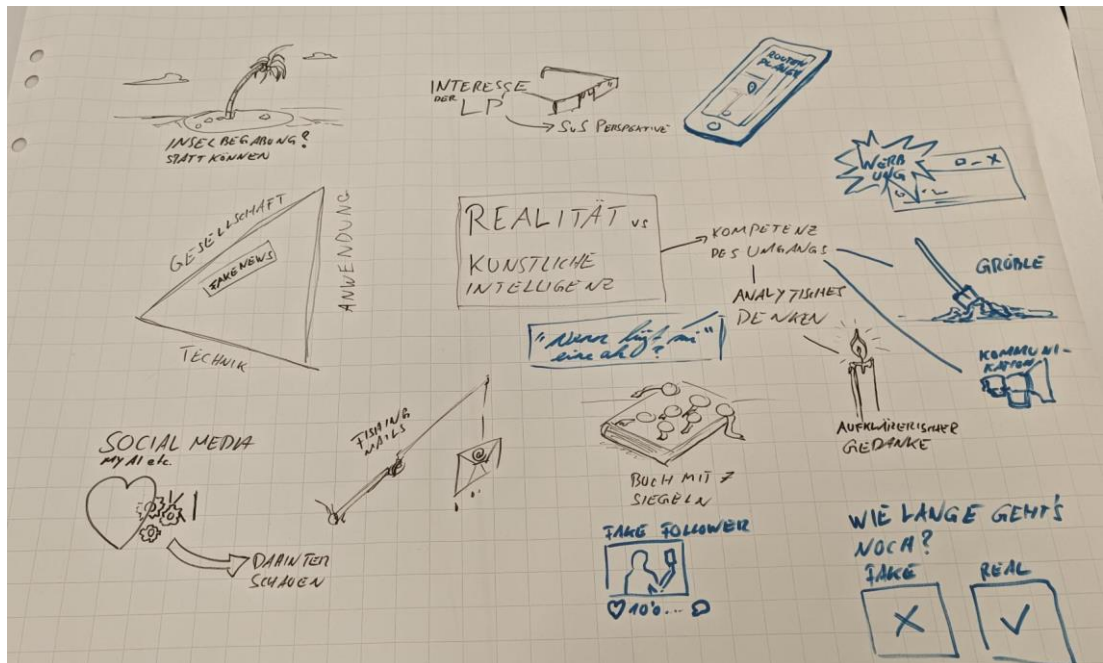 INSELBEGABUNG?
STATT KÖNNEN
INTERESSE
DER LP
SUS PERSPEKTIVE
ROUTEN
PLANER
WERB
UNG
GESELLSCHAFT
FAKENEWS
ANWENDUNG
TECHNIK
REALITÄT VS
KÜNSTLICHE
INTELLIGENZ
KOMPETENZ
DES UMGANGS
ANALYTISCHES
DENKEN
GRÜBLE
KOMMUNI-
KATION
AUFKLÄRERISCHER
GEDANKE
"Wenn lügt mi
eine ah"?
SOCIAL MEDIA
MY AI etc.
DAHINTER
SCHAUEN
FISHING
MAILS
BUCH MIT 7
SIEGELN
FAKE FOLLOWER
10'0...
WIE LANGE GEHT'S
NOCH?
FAKE
REAL